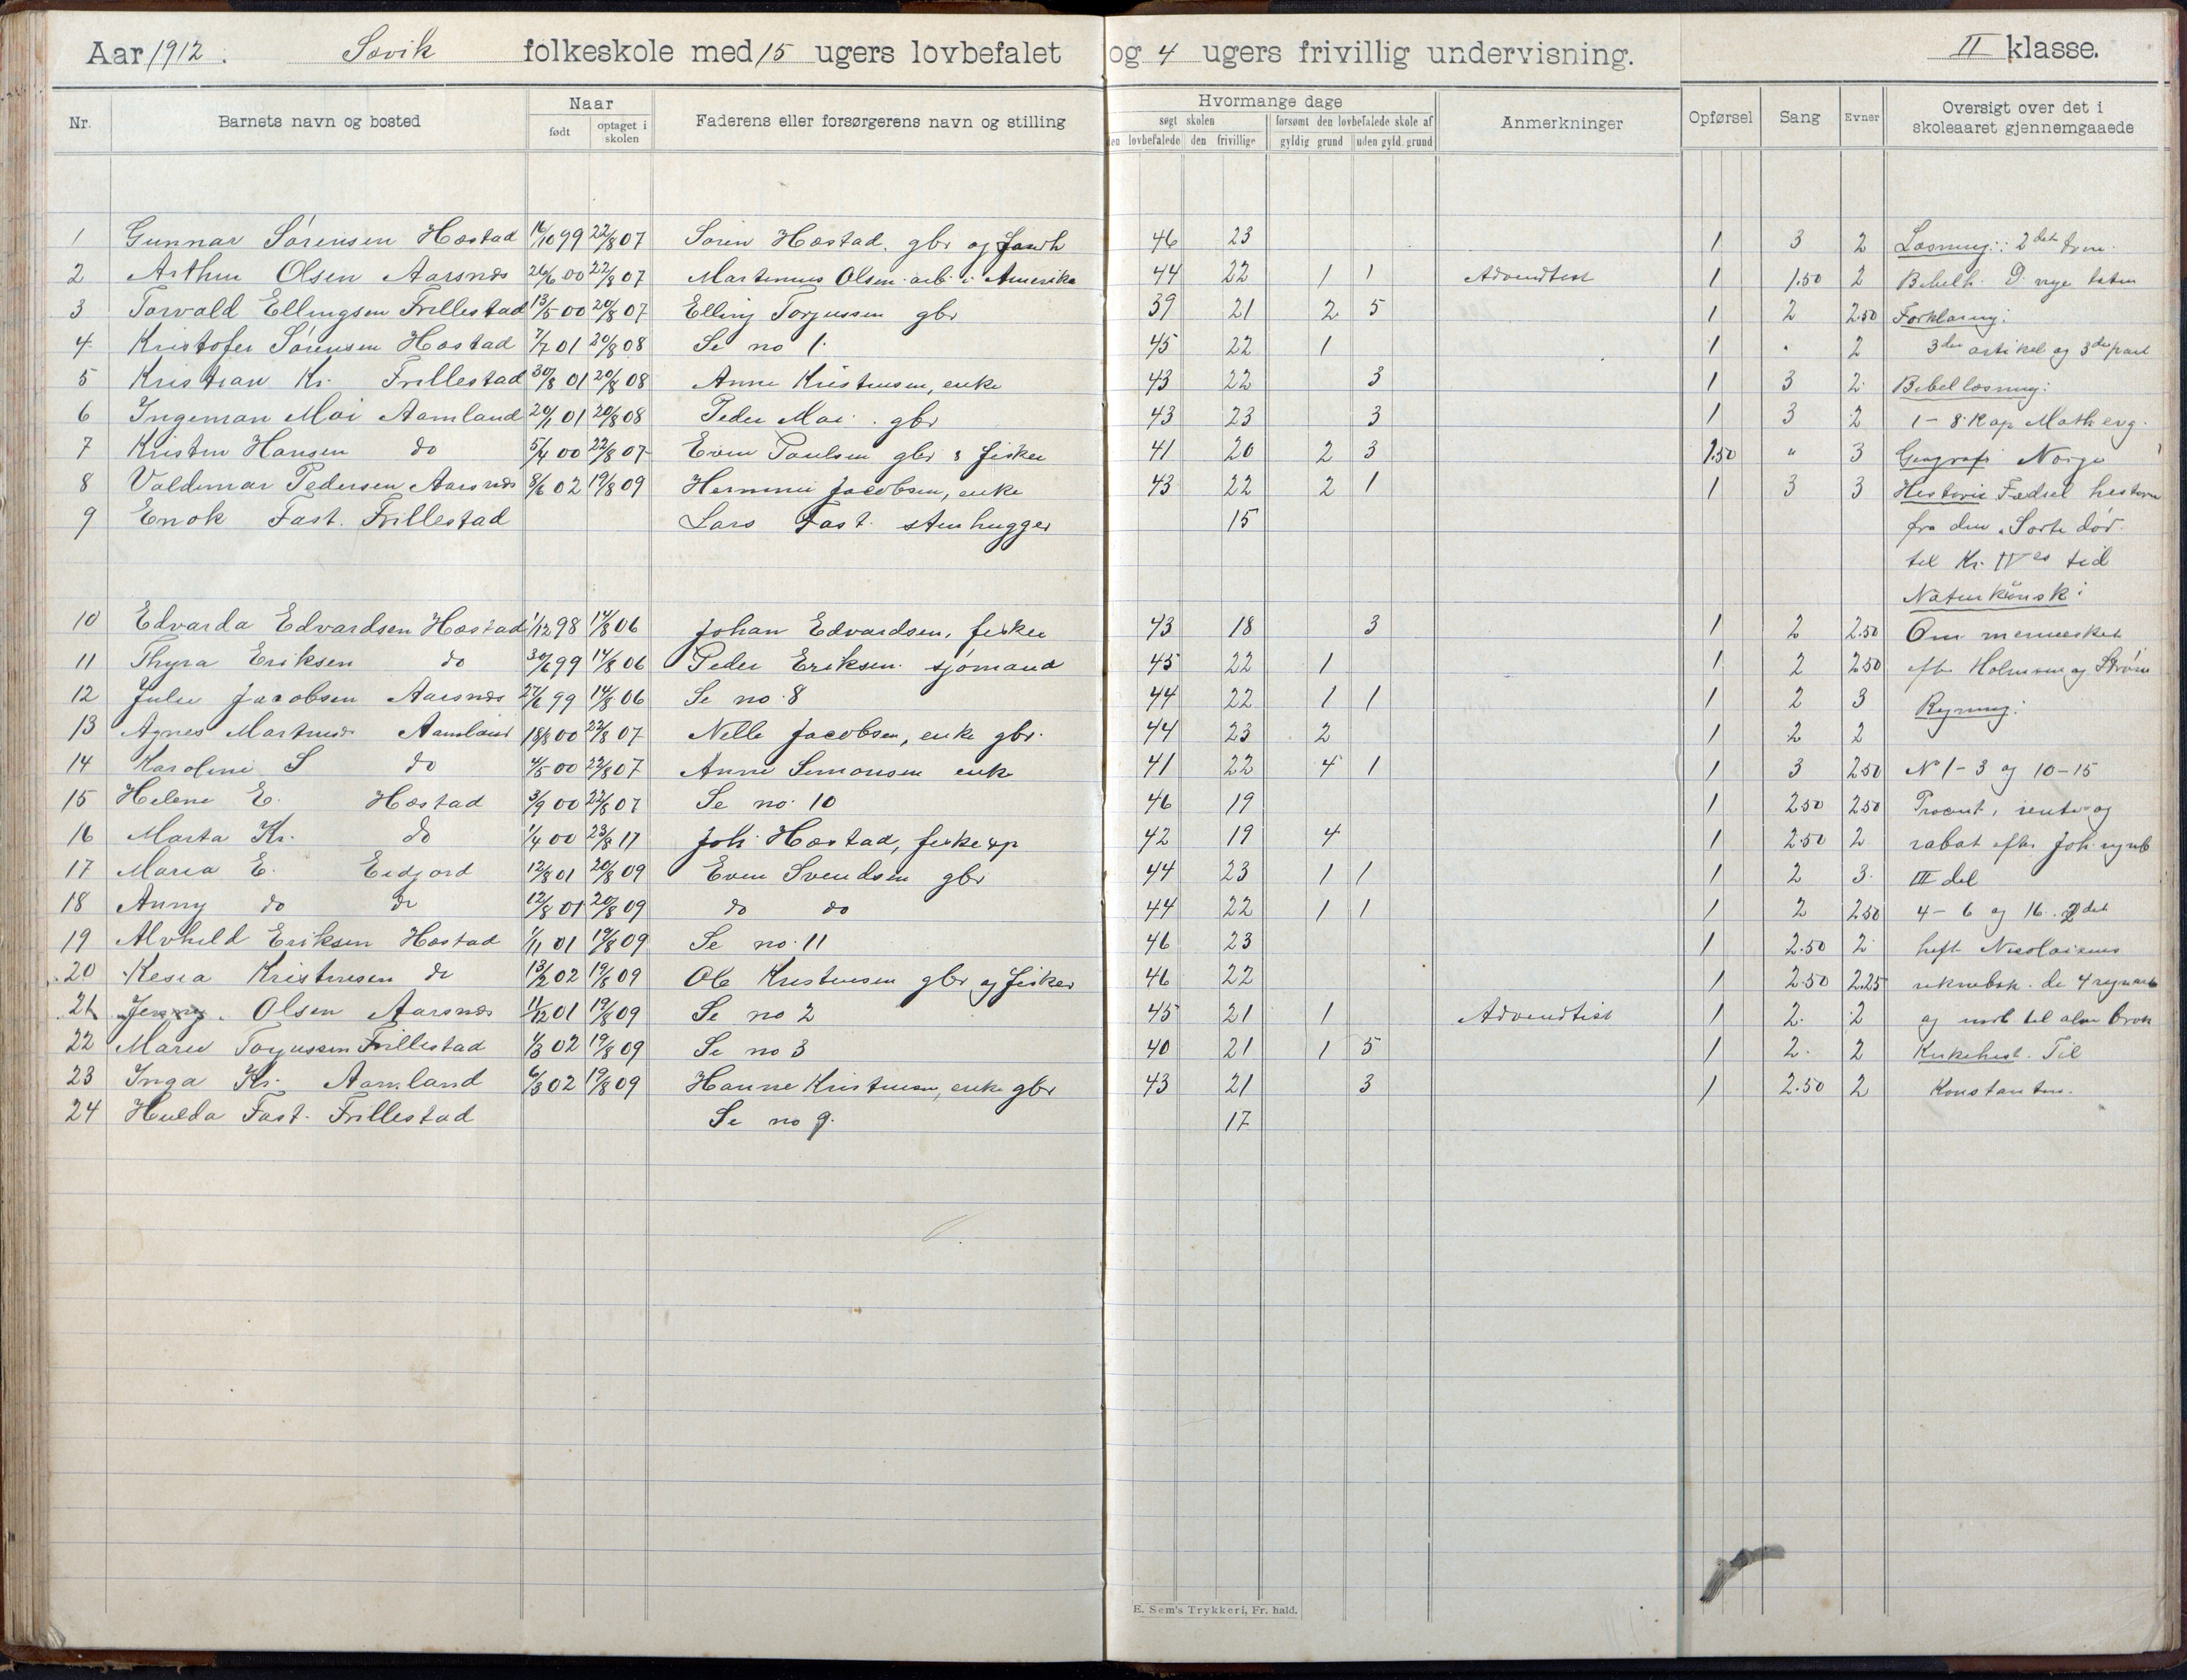 Aar 1912. Søvik folkeskole med 15 ugers lovbefalet og 4 ugers frivillig undervisning. II klasse.
Nr. Barnets navn og bosted Naar født optaget i skolen Faderens eller forsørgerens navn og stilling Hvormange dage søgt skolen den lovbefalede den frivillige forsømt den lovbefalede skole af gyldig grund uden gyld. grund Anmerkninger Opførsel Sang Evner Oversigt over det i skoleaaret gjennemgaaede
1 Gunnar Sørensen Hæstad 16/10 99 22/8 07 Søren Hæstad. gbr og 46 23 1 3 2 Læsning: 2det
2 Arthur Olsen Aarsnæs 26/6 00 22/8 07 Martinius Olsen arb. i Amerika 44 22 1 1 Advendtist 1 1.50 2 Bibelh. D. nye
3 Torvald Ellingsen Frillestad 13/5 00 20/8 07 Elling Torjussen gbr 39 21 2 5 1 2 2.50 Forklaring:
4. Kristofer Sørensen Hæstad 7/7 01 20/8 08 Se no 1. 45 22 1 1 2 3die artikel og 3die part
5 Kristian Kr. Frillestad 30/8 01 20/8 08 Anne Kristensen, enke 43 22 3 1 3 2 Bibellæsning:
6 Ingeman Moi Aamland 20/1 01 20/8 08 Peder Moi. gbr 43 23 3 1 3 2 1-8 Kap Math evg.
7 Kristen Hansen do 5/4 00 22/8 07 Even Paulsen gbr & fisker 41 20 2 3 1.50 " 3 Geografi Norge
8 Valdemar Pedersen Aarsnæs 8/6 02 19/8 09 Jacobsen, enke 43 22 2 1 1 3 3 Historie Fædrel historie
9 Enok Fast. Frillestad Lars Fast. stenhugger 15 fra den Sorte død.
til Kr. IVes tid
Naturkunsk:
10 Edvarda Edvardsen Hæstad 1/12 98 14/8 06 Johan Edvardsen, fisker 43 18 3 1 2 2.50 Om mennesket
11 Thyra Eriksen do 30/6 99 14/8 06 Peder Eriksen. sjømand 45 22 1 1 2 2.50 efter Holmsen og Strøm
12 Julie Jacobsen Aarsnæs 27/6 99 14/8 06 Se no. 8 44 22 1 1 1 2 3 Regning:
13 Agnes Aamland 18/8 00 22/8 07 Nelle Jacobsen, enke gbr. 44 23 2 1 2 2
14 Karoline S do 4/5 00 22/8 07 Anne Simonsen enke 41 22 4 1 1 3 2.50 N 1-3 og 10-15
15 Helene E. Hæstad 3/9 00 22/8 07 Se no. 10 46 19 1 2.50 2.50 Procent, rente og
16 Marta Kr. do 1/4 00 23/8 11 Joh. Hæstad, 42 19 4 1 2.50 2 rabat efter Joh.
17 Maria E. Eidjord 12/8 01 20/8 09 Even Svendsen gbr 44 23 1 1 1 2 3. III del
18 Anny do do 12/8 01 20/8 09 do do 44 22 1 1 1 2 2.50 4-6 og 16. 2det
19 Alvhild Eriksen Hæstad 1/11 01 19/8 09 Se no. 11 46 23 1 2.50 2 heft Nicolaisens
20 Kesia Kristensen do 13/2 02 19/8 09 Ole Kristensen gbr og fisker 46 22 1 2.50 2.25 de 4 regnart
21 Jenny Olsen Aarsnæs 11/12 01 19/8 09 Se no 2 45 21 1 Advendtist 1 2. 2 og til alm brøk
22 Marie Torjussen Frillestad 1/3 02 19/8 09 Se no 3 40 21 1 5 1 2. 2 Kirkehist. Til
23 Inga Kr. Aamland 6/3 02 19/8 09 Hanne Kristensen, enke gbr 43 21 3 1 2.50 2 Konstantin.
24 Hulda Fast. Frillestad Se no 9. 17
E. Sem's Trykkeri, Fr. hald.